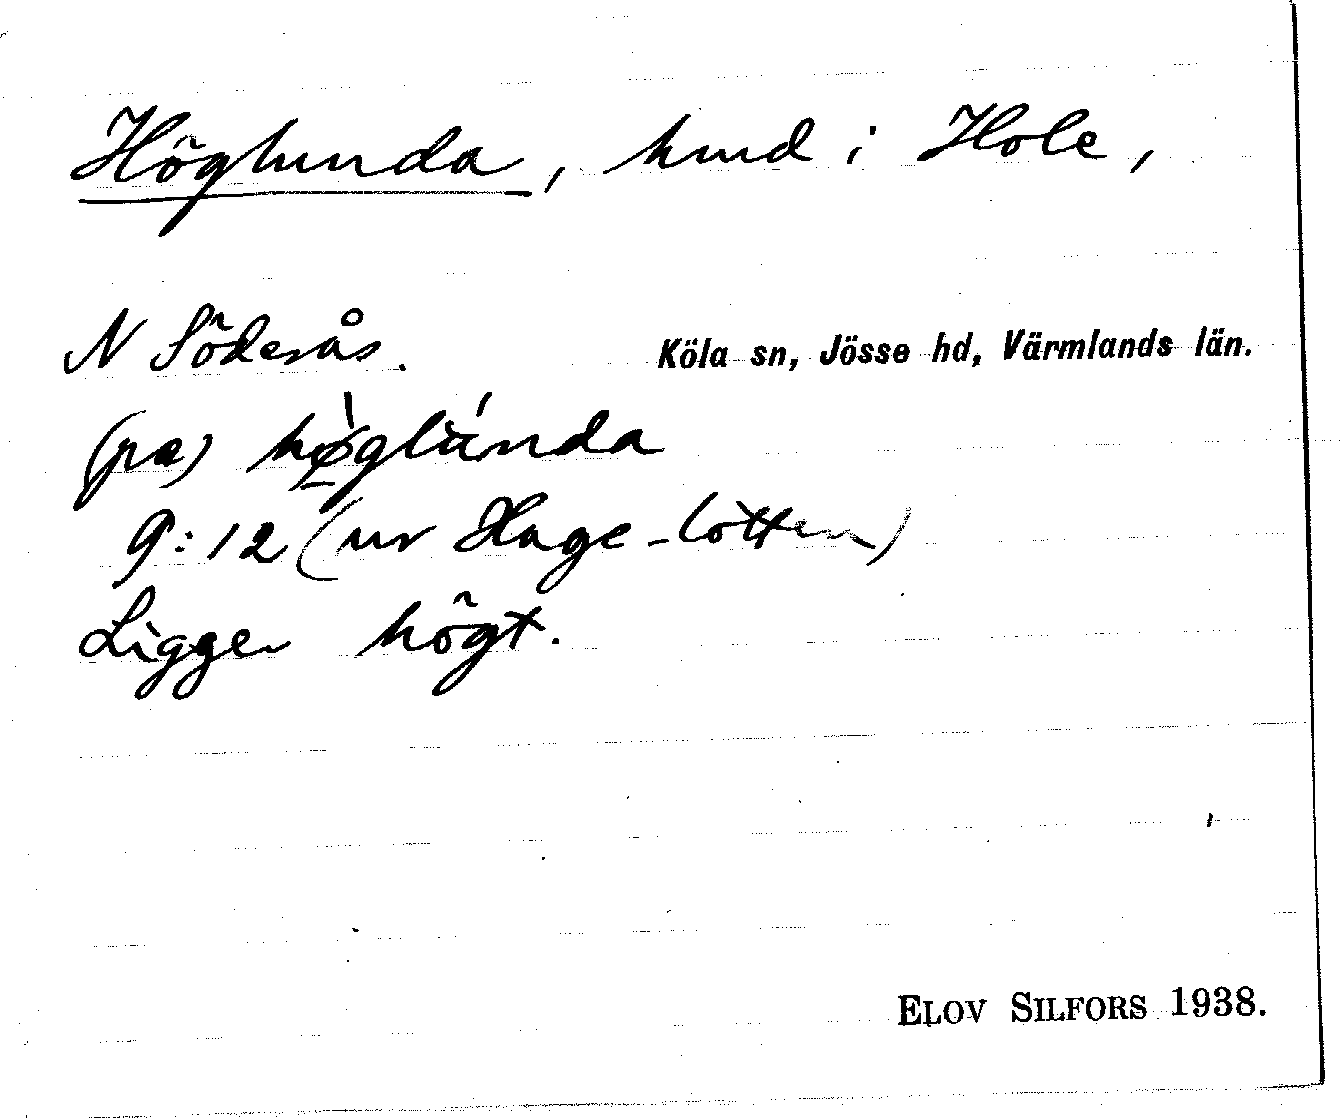 Höglunda, hmd i Hole,
N Söderås. Köla sn, Jösse hd, Värmlands län.
(pa) hø̀glúnda
9:12 (ur Hage-lotten)
Ligger högt.
ELOV SILFORS 1938.